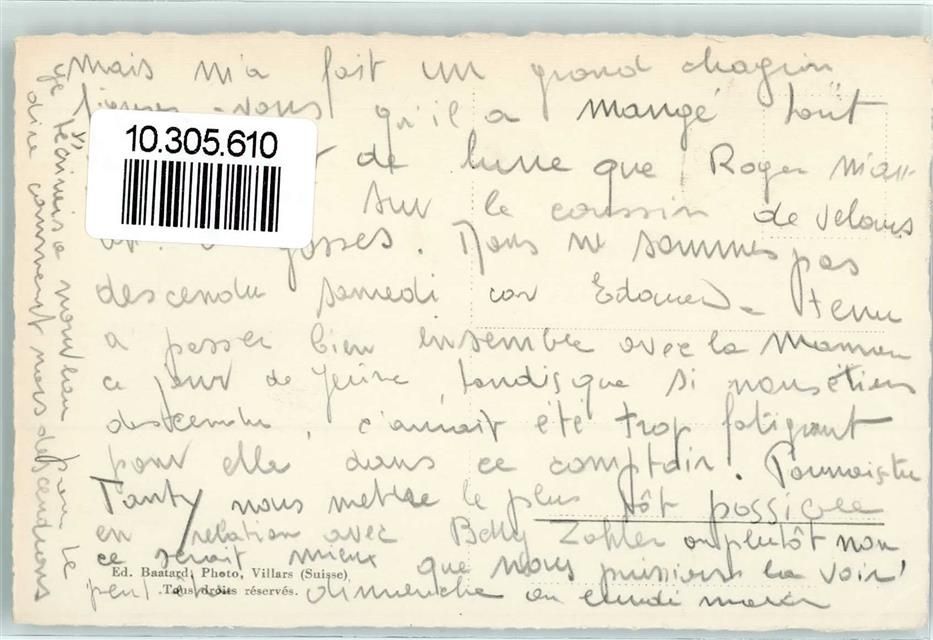 mais m'a fait un grand chagrin
vous qu'il a mangé tout
10.305.610
de lune que Roger m'au-
sur le coussin de velours
gosses. Nous ne sommes pas
descendu samedi car Edouard tenu
a passer bien ensemble avec la Maman
ce jour de Jeûne, tandis que si nous étions
descendu, c'aurait été trop fatigant
pour elle dans ce comptoir. Pourrais-tu
Tanty nous mettre le plus tôt possible
en relation avec Betty Zahler ou plutôt non
ce serait mieux que nous puissions la voir
Ed. Baatard, Photo, Villars (Suisse)
Tous droits réservés.
peut dimanche ou lundi
je téléphonerai nouveau pour te
dire comment nous descendrons